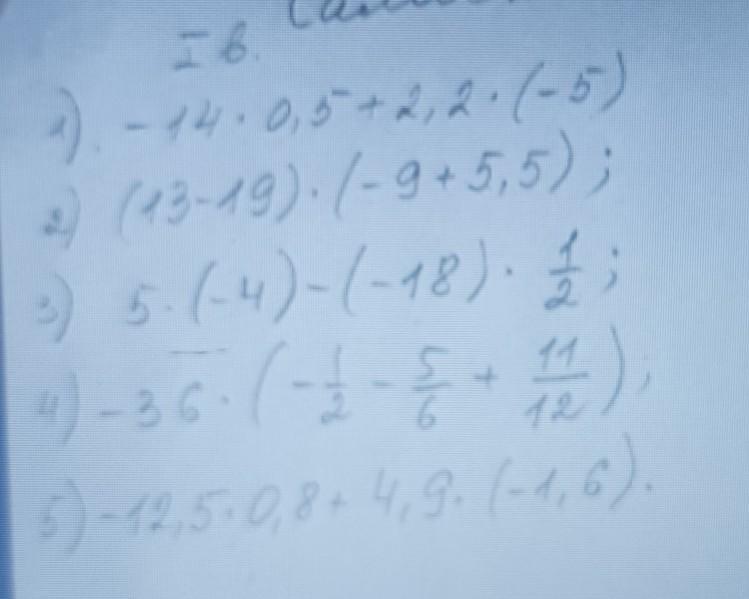 I в.
1) -14 · 0,5 + 2,2 · (-5)
2) (13-19) · (-9 + 5,5) ;
3) 5 · (-4) - (-18) · 1/2 ;
4) -36 · (-1/2 - 5/6 + 11/12) ;
5) -12,5 · 0,8 + 4,9 · (-1,6).